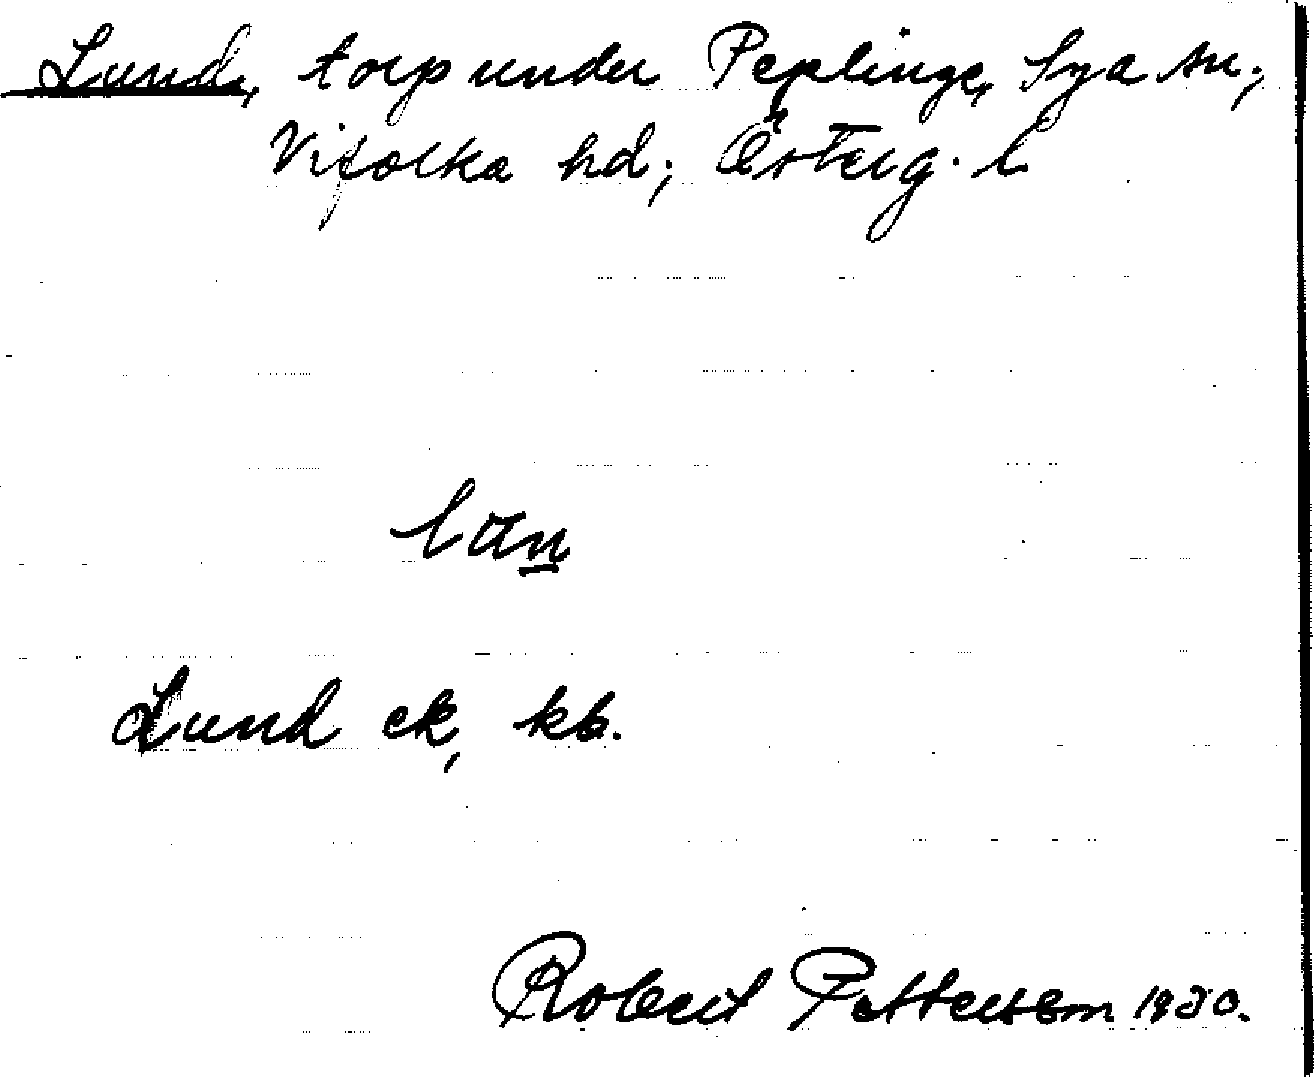 Lund, torp under Peplinge, Sya sn.,
Vifolka hd; Österg. l
lun
Lund ek, kb.
Robert Pettersson 1930.